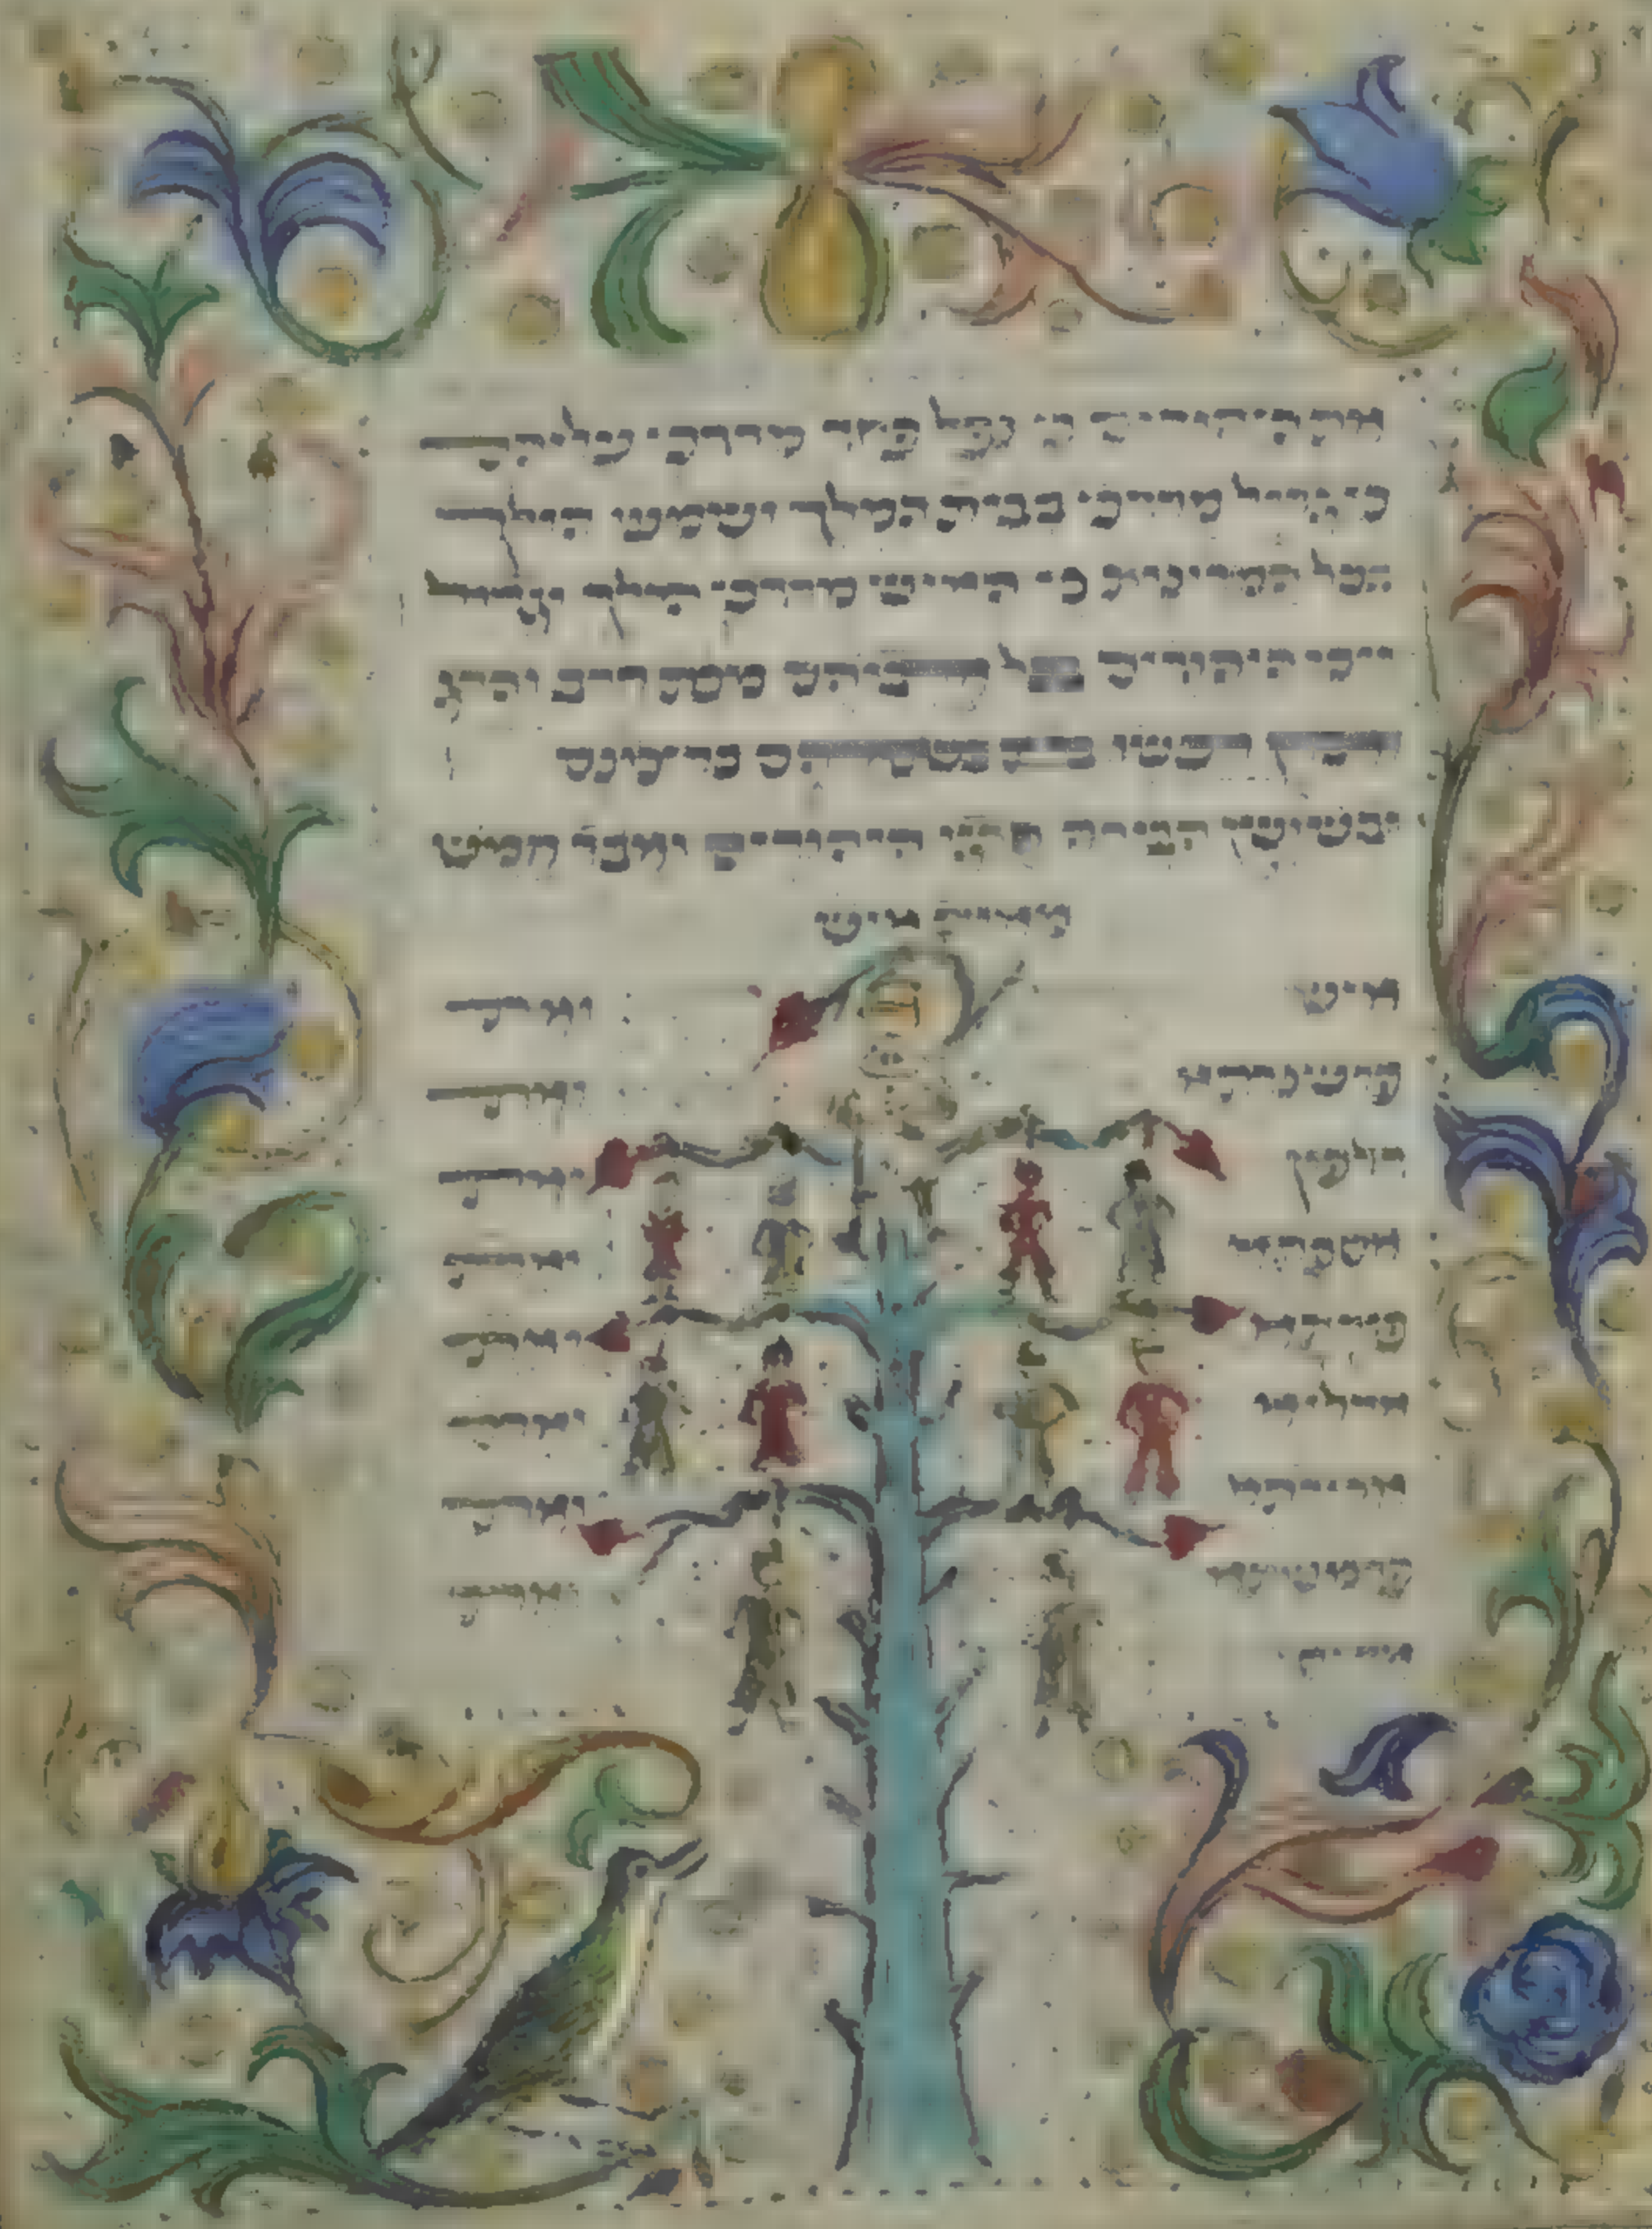 את היהודים כי נפל פחד מרדכי עליהם
כי גדול מרדכי בבית המלך ושמעו הולך
בכל המדינות כי האיש מרדכי הולך וגדול
ויכו היהודים בכל איביהם מכת חרב והרג
ואבדן ויעשו בשנאיהם כרצונם
ובשושן הבירה הרגו היהודים ואבד חמש
מאות איש
איש ואת
פרשנדתא ואת
דלפון ואת
אספתא ואת
פורתא ואת
אדליא ואת
ארידתא ואת
פרמשתא ואת